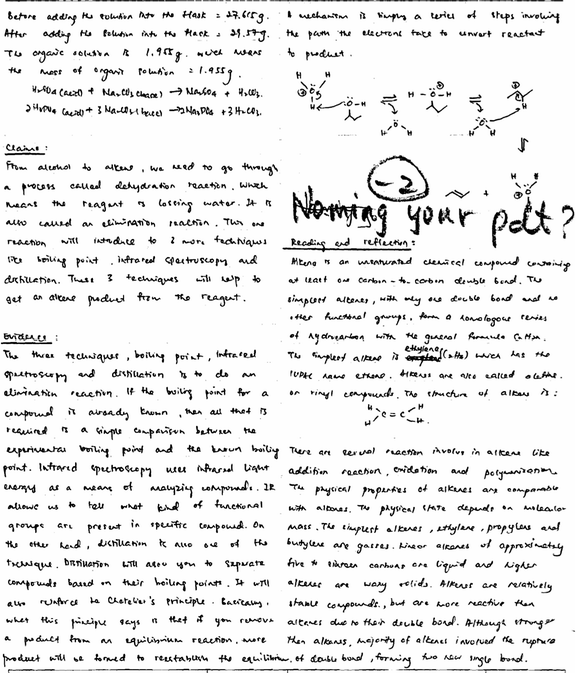 Before adding the solution into the flask = 27.615g.
After adding the solution into the flask = 29.57g.
The organic solution is 1.955g. which means
the mass of organic solution = 1.955g.
H2SO4 (acid) + Na2CO3 (base) → Na2SO4 + H2CO3.
2H3PO4 (acid) + 3 Na2CO3 (base) → 2Na3PO4 + 3H2CO3.
Claims:
From alcohol to alkene, we need to go through
a process called dehydration reaction. Which
means the reagent is lossing water. It is
also called an elimination reaction. This one
reaction will introduce to 3 more techniques
like boiling point, infrared spectroscopy and
distillation. These 3 techniques will help to
get an alkene product from the reagent.
Evidence:
The three techniques, boiling point, infrared
spectroscopy and distillation is to do an
elimination reaction. If the boiling point for a
compound is already known, then all that is
required is a simple comparison between the
experimental boiling point and the known boiling
point. Infrared spectroscopy uses infrared light
energy as a means of analyzing compounds. IR
allows us to tell what kind of functional
groups are present in specific compound. On
the other hand, distillation is also one of the
technique. Distillation will allow you to separate
compounds based on their boiling points. It will
also reinforce Le Chatelier's principle. Basically,
what this principle says is that if you remove
a product from an equilibrium reaction, more
product will be formed to reestablish the equilibrium.
A mechanism is simply a series of steps involving
the path the electrons take to convert reactant
to product.
-2
Naming your pdt?
Reading and reflection:
Alkene is an unsaturated chemical compound containing
at least one carbon-to-carbon double bond. The
simplest alkenes, with only one double bond and no
other functional groups, form a homologous series
of hydrocarbon with the general formula CnH2n.
The simplest alkene is ethylene (C2H4) which has the
IUPAC name ethene. Alkenes are also called olefins
or vinyl compounds. The structure of alkene is:
H H
C = C
H H
There are several reaction involve in alkene like
addition reaction, oxidation and polymerization.
The physical properties of alkenes are comparable
with alkanes. The physical state depends on molecular
mass. The simplest alkenes, ethylene, propylene and
butylene are gasses. Linear alkenes of approximately
five to sixteen carbons are liquid and higher
alkenes are waxy solids. Alkenes are relatively
stable compounds, but are more reactive than
alkanes due to their double bond. Although stronger
than alkanes, majority of alkenes involved the rupture
of double bond, forming two new single bond.